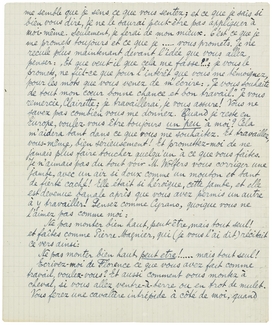 me semble que je sens ce que vous sentez, et ce que je sais si
bien vous dire, je ne le saurai peut-être pas appliquer à
moi-même. Seulement, je ferai de mon mieux. C'est ce que je
me promets toujours et ce que je ..... vous promets. Je ne
recule plus maintenant devant l'idée que vous allez
penser: Et que veut-il que cela me fasse?... je vous le
promets, ne fût-ce que pour l'intérêt que vous me témoignez,
pour les mots que vous venez de m'écrire. Je vous souhaite
de tout mon cœur bonne chance et bon travail. Je vous
remercie, Clairette, je travaillerai, je vous assure! Vous ne
savez pas combien vous me donnez. Quand je reste en
Europe, voulez-vous être toujours un peu à moi? Cela
m'aidera tant dans ce que vous me souhaitez. Et travaillez,
vous-même, bien sérieusement! Et promettez-moi de ne
jamais plus faire toucher quelqu'un à ce que vous faites.
Je n'aimais pas du tout voir A. Moffers vous corriger une
jambe, avec un air si doux comme un mouton et tant
de fierté caché! Elle était si héroïque, cette jambe, et elle
est devenue quelconque après que vous avez permis un autre
à y travailler! Pensez comme Cyrano, quoique vous ne
l'aimez pas comme moi:
Ne pas monter bien haut, peut-être, mais tout seul!
et faites comme Pierre Magnier, qui (je vous l'ai dit) récitait
ce vers ainsi:
Ne pas monter bien haut, peut-être..... mais tout seul!
Écrivez-moi de Florence ce que vous avez fait comme
travail, voulez-vous? Et aussi comment vous montez à
cheval, si vous allez ventre-à-terre ou en trot de mulet.
Vous ferez une cavalière intrépide à côté de moi, quand